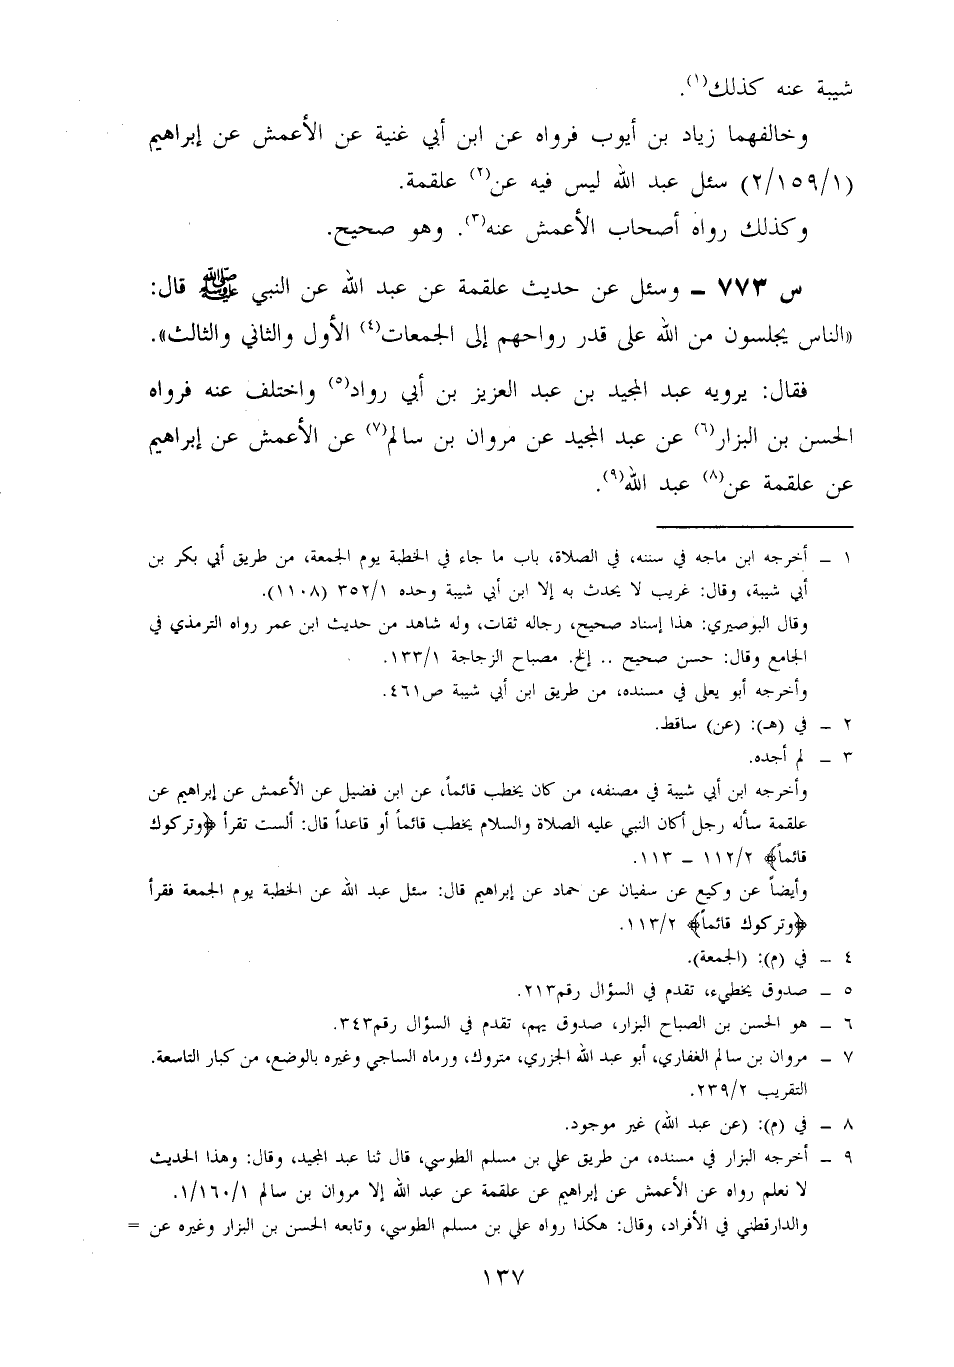 شيبة عنه كذلك(١).
وخالفهما زياد بن أيوب فرواه عن ابن أبي غنية عن الأعمش عن إبراهيم
(٢/١٥٩/١) سئل عبد الله ليس فيه عن(٢) علقمة.
وكذلك رواه أصحاب الأعمش عنه(٣). وهو صحيح.
س ٧٧٣ ـ وسئل عن حديث علقمة عن عبد الله عن النبي ﷺ قال:
«الناس يجلسون من الله على قدر رواحهم إلى الجمعات(٤) الأول والثاني والثالث».
فقال: يرويه عبد المجيد بن عبد العزيز بن أبي رواد(٥) واختلف عنه فرواه
الحسن بن البزار(٦) عن عبد المجيد عن مروان بن سالم(٧) عن الأعمش عن إبراهيم
عن علقمة عن(٨) عبد الله(٩).
١ ـ أخرجه ابن ماجه في سننه، في الصلاة، باب ما جاء في الخطبة يوم الجمعة، من طريق أبي بكر بن
أبي شيبة، وقال: غريب لا يحدث به إلا ابن أبي شيبة وحده ٣٥٢/١ (١١٠٨).
وقال البوصيري: هذا إسناد صحيح، رجاله ثقات، وله شاهد من حديث ابن عمر رواه الترمذي في
الجامع وقال: حسن صحيح .. إلخ. مصباح الزجاجة ١٣٣/١.
وأخرجه أبو يعلى في مسنده، من طريق ابن أبي شيبة ص٤٦١.
٢ ـ في (هـ): (عن) ساقط.
٣ ـ لم أجده.
وأخرجه ابن أبي شيبة في مصنفه، من كان يخطب قائماً، عن ابن فضيل عن الأعمش عن إبراهيم عن
علقمة سأله رجل أكان النبي عليه الصلاة والسلام يخطب قائماً أو قاعداً قال: ألست تقرأ ﴿وتركوك
قائماً﴾ ١١٢/٢ ـ ١١٣.
وأيضاً عن وكيع عن سفيان عن حماد عن إبراهيم قال: سئل عبد الله عن الخطبة يوم الجمعة فقرأ
﴿وتركوك قائماً﴾ ١١٣/٢.
٤ ـ في (م): (الجمعة).
٥ ـ صدوق يخطيء، تقدم في السؤال رقم٢١٣.
٦ ـ هو الحسن بن الصباح البزار، صدوق يهم، تقدم في السؤال رقم٣٤٣.
٧ ـ مروان بن سالم الغفاري، أبو عبد الله الجزري، متروك، ورماه الساجي وغيره بالوضع، من كبار التاسعة.
التقريب ٢٣٩/٢.
٨ ـ في (م): (عن عبد الله) غير موجود.
٩ ـ أخرجه البزار في مسنده، من طريق علي بن مسلم الطوسي، قال ثنا عبد المجيد، وقال: وهذا الحديث
لا نعلم رواه عن الأعمش عن إبراهيم عن علقمة عن عبد الله إلا مروان بن سالم ١/١٦٠/١.
والدارقطني في الأفراد، وقال: هكذا رواه علي بن مسلم الطوسي، وتابعه الحسن بن البزار وغيره عن =
١٣٧